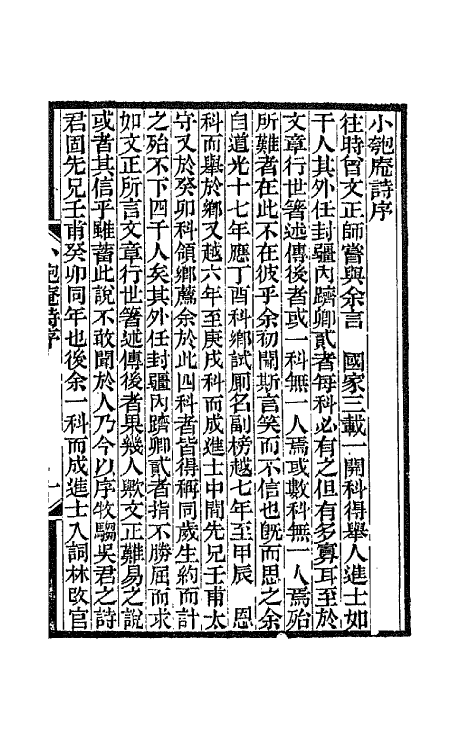 小匏庵詩序
往時曾文正師嘗與余言　國家三載一開科得舉人進士如
干人其外任封疆內躋卿貳者每科必有之但有多寡耳至於
文章行世箸述傳後者或一科無一人焉或數科無一人焉殆
所難者在此不在彼乎余初聞斯言笑而不信也旣而思之余
自道光十七年應丁酉科鄉試厠名副榜越七年至甲辰　恩
科而舉於鄉又越六年至庚戌科而成進士中間先兄壬甫太
守又於癸卯科領鄉薦余於此四科者皆得稱同歲生約而計
之殆不下四千人矣其外任封疆內躋卿貳者指不勝屈而求
如文正所言文章行世箸述傳後者果幾人歟文正難易之說
或者其信乎雖蓄此說不敢聞於人乃今以序牧騶吳君之詩
君固先兄壬甫癸卯同年也後余一科而成進士入詞林改官
小匏庵詩序
一